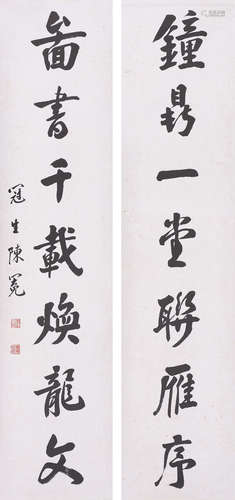 鐘鼎一堂聯雁序
圖書千載煥龍文
冠生陳冕